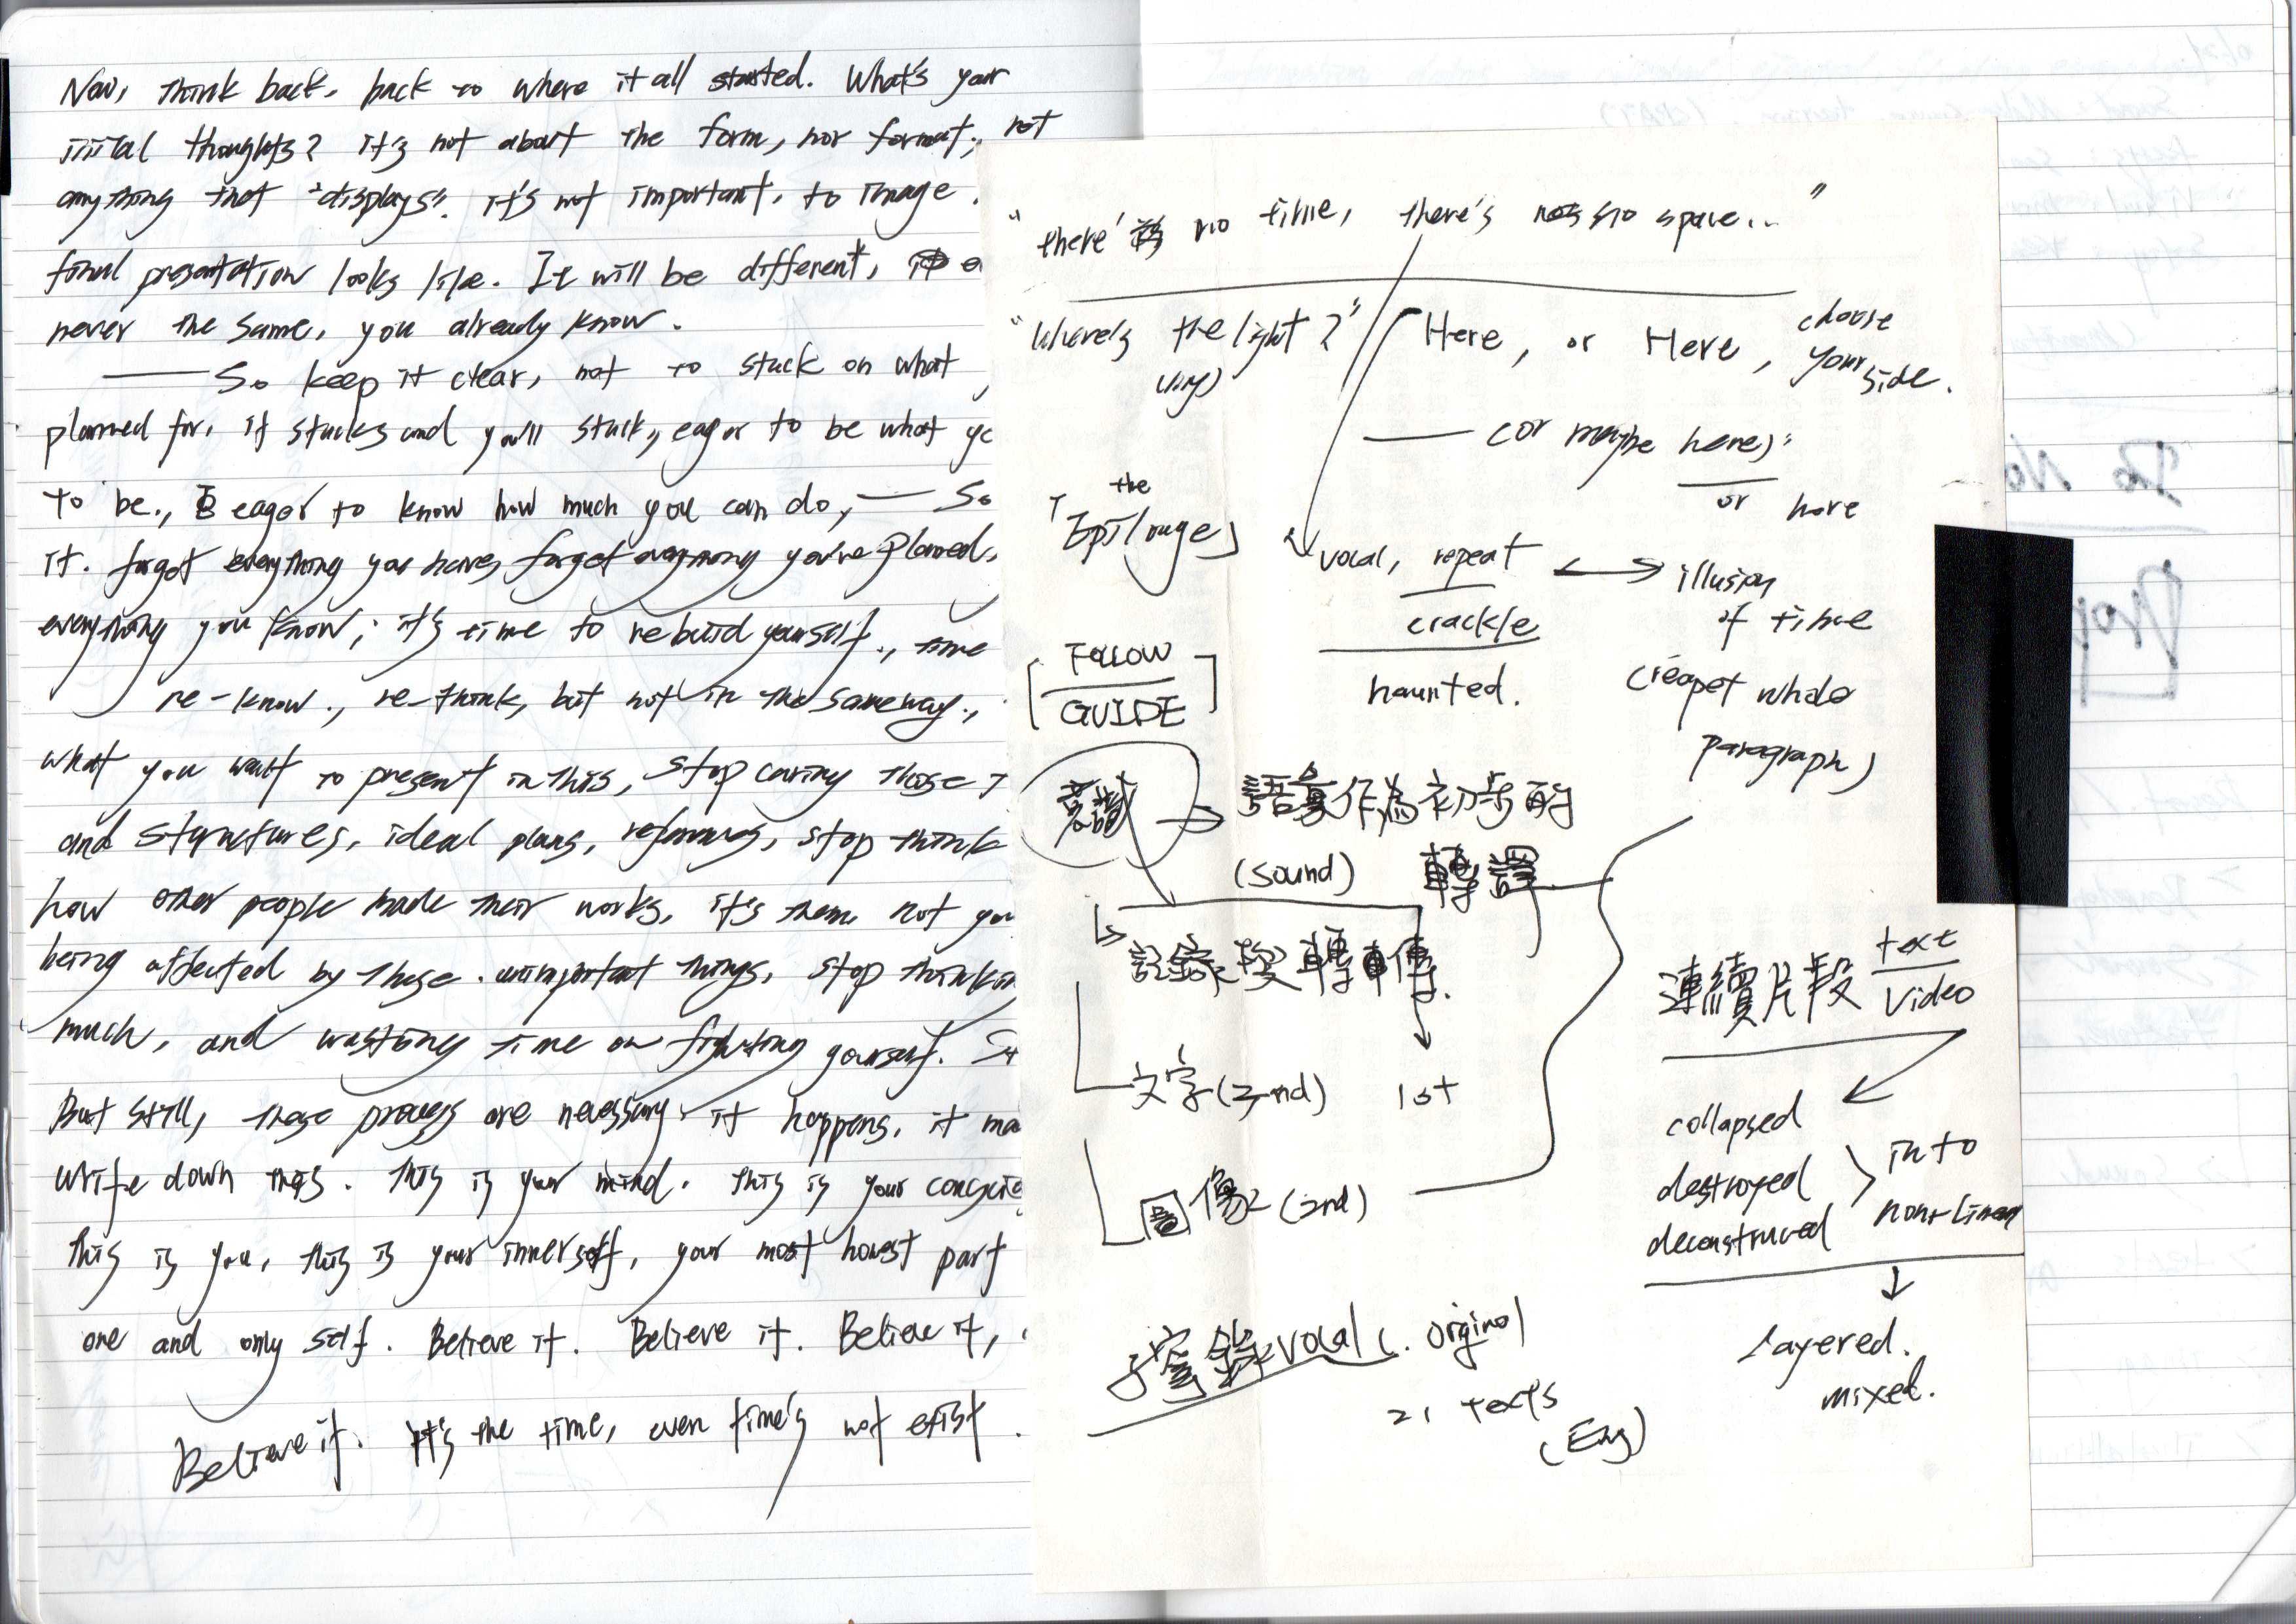 Now, think back, back to where it all started. What's your
iiital thoughts? it's not about the form, nor format, not
anything that "displays". it's not important, to image
final presentation looks like. It will be different,
never the same, you already know.
—— So keep it clear, not to stuck on what
planned for, it stucks and you'll stuck, eager to be what
to be., eager to know how much you can do, — So
it. forget everything you haves forget everything you've planned,
everything you know; it's time to rebuid yourself., time
re-know., re-think, but not in the same way.,
what you want to present in this, stop caring those
and structures, ideal plans, stop think
how other people made their works, it's them, not you
being affected by these unimportant things, stop thinkin
much, and wasting time on fighting yourself.
But still, these process are necessary. it happens, it
write down this. This is your mind. this is your
this is you, this is your innerself, your most honest part
one and only self. Believe it. Believe it. Believe it,
Believe it. It's the time, even time's not exist.
"there's no time, there's no space.."
"Where's the light?" Here, or Here, choose
your side.
—— (or maybe here)"
or here
「the Epilouge」
vocal, repeat ↔ illusion
crackle of time
haunted. (repeat whole
paragraph)
[FOLLOW
GUIDE]
意識 → 語彙作為初步的
(sound) 轉譯
記錄與轉傳.
文字(2nd) 1st
圖像(2nd)
連續片段 text
video
collapsed
destroyed
deconstruced
into
non-linear
layered.
mixed.
vocal 1. original
2. texts
(Eng)